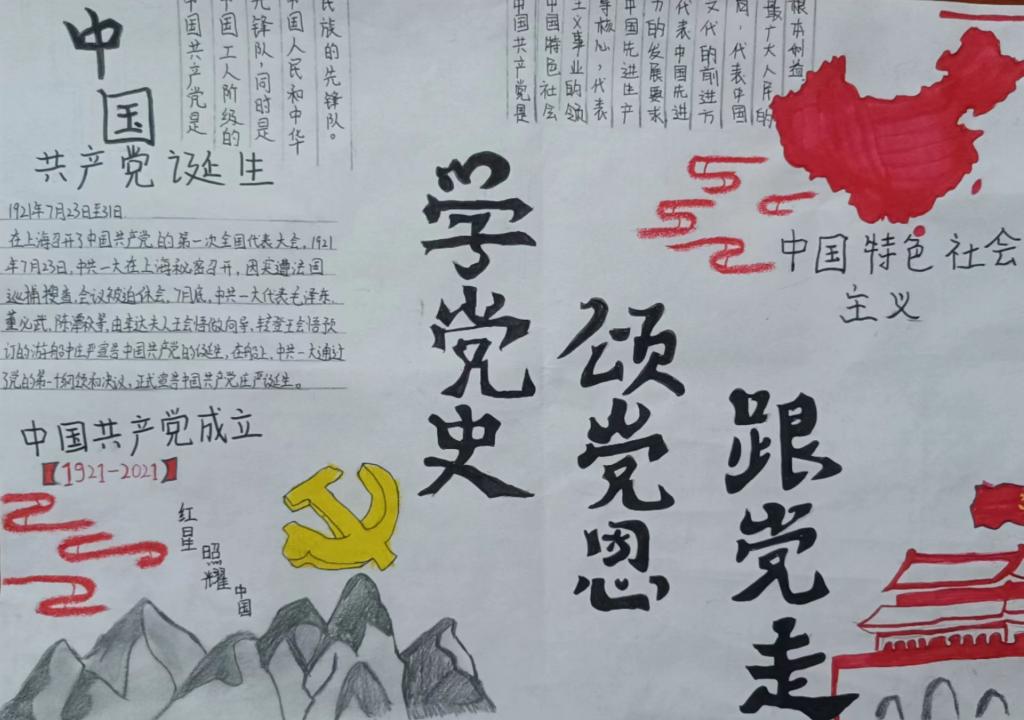 中国
共产党诞生
中国共产党是
中国工人阶级的
先锋队,同时是
中国人民和中华
民族的先锋队。
1921年7月23日至31日
在上海召开了中国共产党的第一次全国代表大会。1921
年7月23日,中共一大在上海秘密召开,因突遭法国
巡捕搜查,会议被迫休会。7月底,中共一大代表毛泽东、
董必武、陈潭秋等,由李达夫人王会悟做向导,转登王会悟预
订的游船中庄严宣告中国共产党的诞生,在船上,中共一大通过
了党的第一个纲领和决议,正式宣告中国共产党庄严诞生。
中国共产党成立
【1921-2021】
红星
照耀
中国
学党史
颂党恩
跟党走
中国共产党是
中国特色社会
主义事业的领
导核心,代表
中国先进生产
力的发展要求
代表中国先进
文化的前进方
向,代表中国
最广大人民的
根本利益
中国特色社会
主义